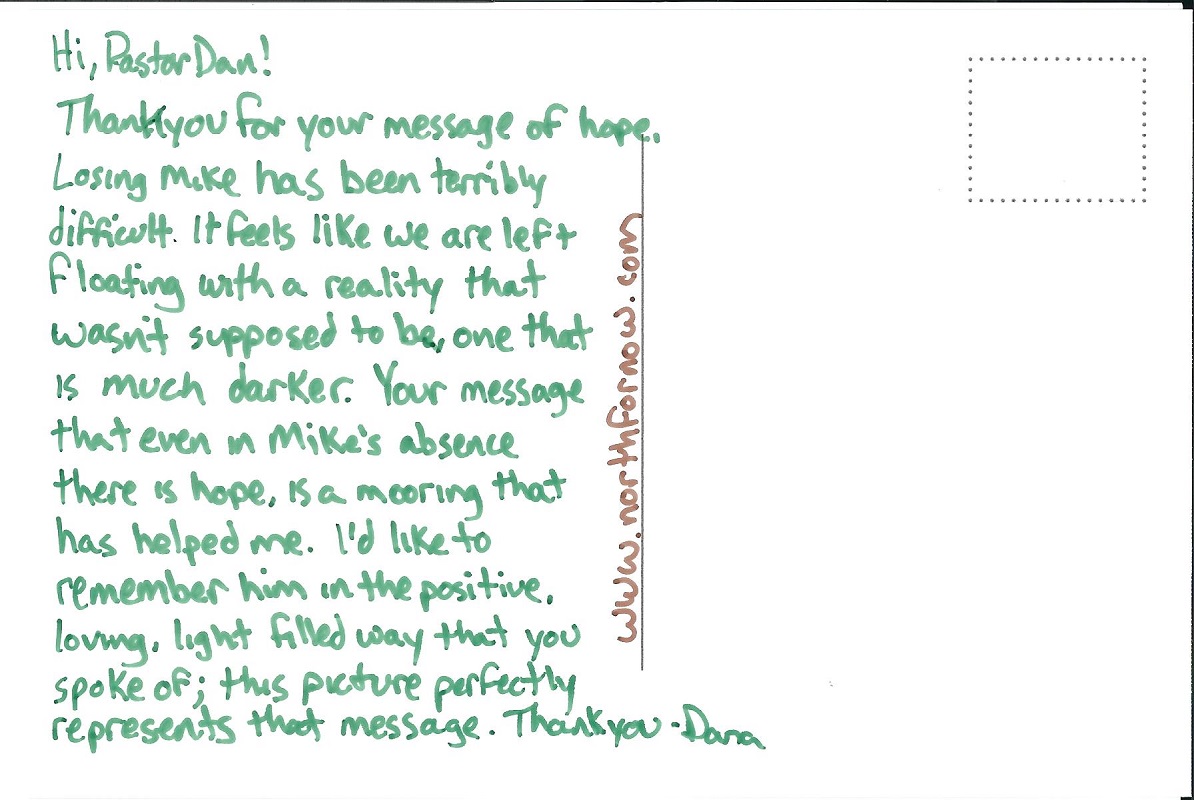 Hi, Pastor Dan!
Thankyou for your message of hope.
Losing Mike has been terribly
difficult. It feels like we are left
floating with a reality that
wasn't supposed to be, one that
is much darker. Your message
that even in Mike's absence
there is hope, is a mooring that
has helped me. I'd like to
remember him in the positive,
loving, light filled way that you
spoke of; this picture perfectly
represents that message. Thankyou -Dana
www.northfornow.com